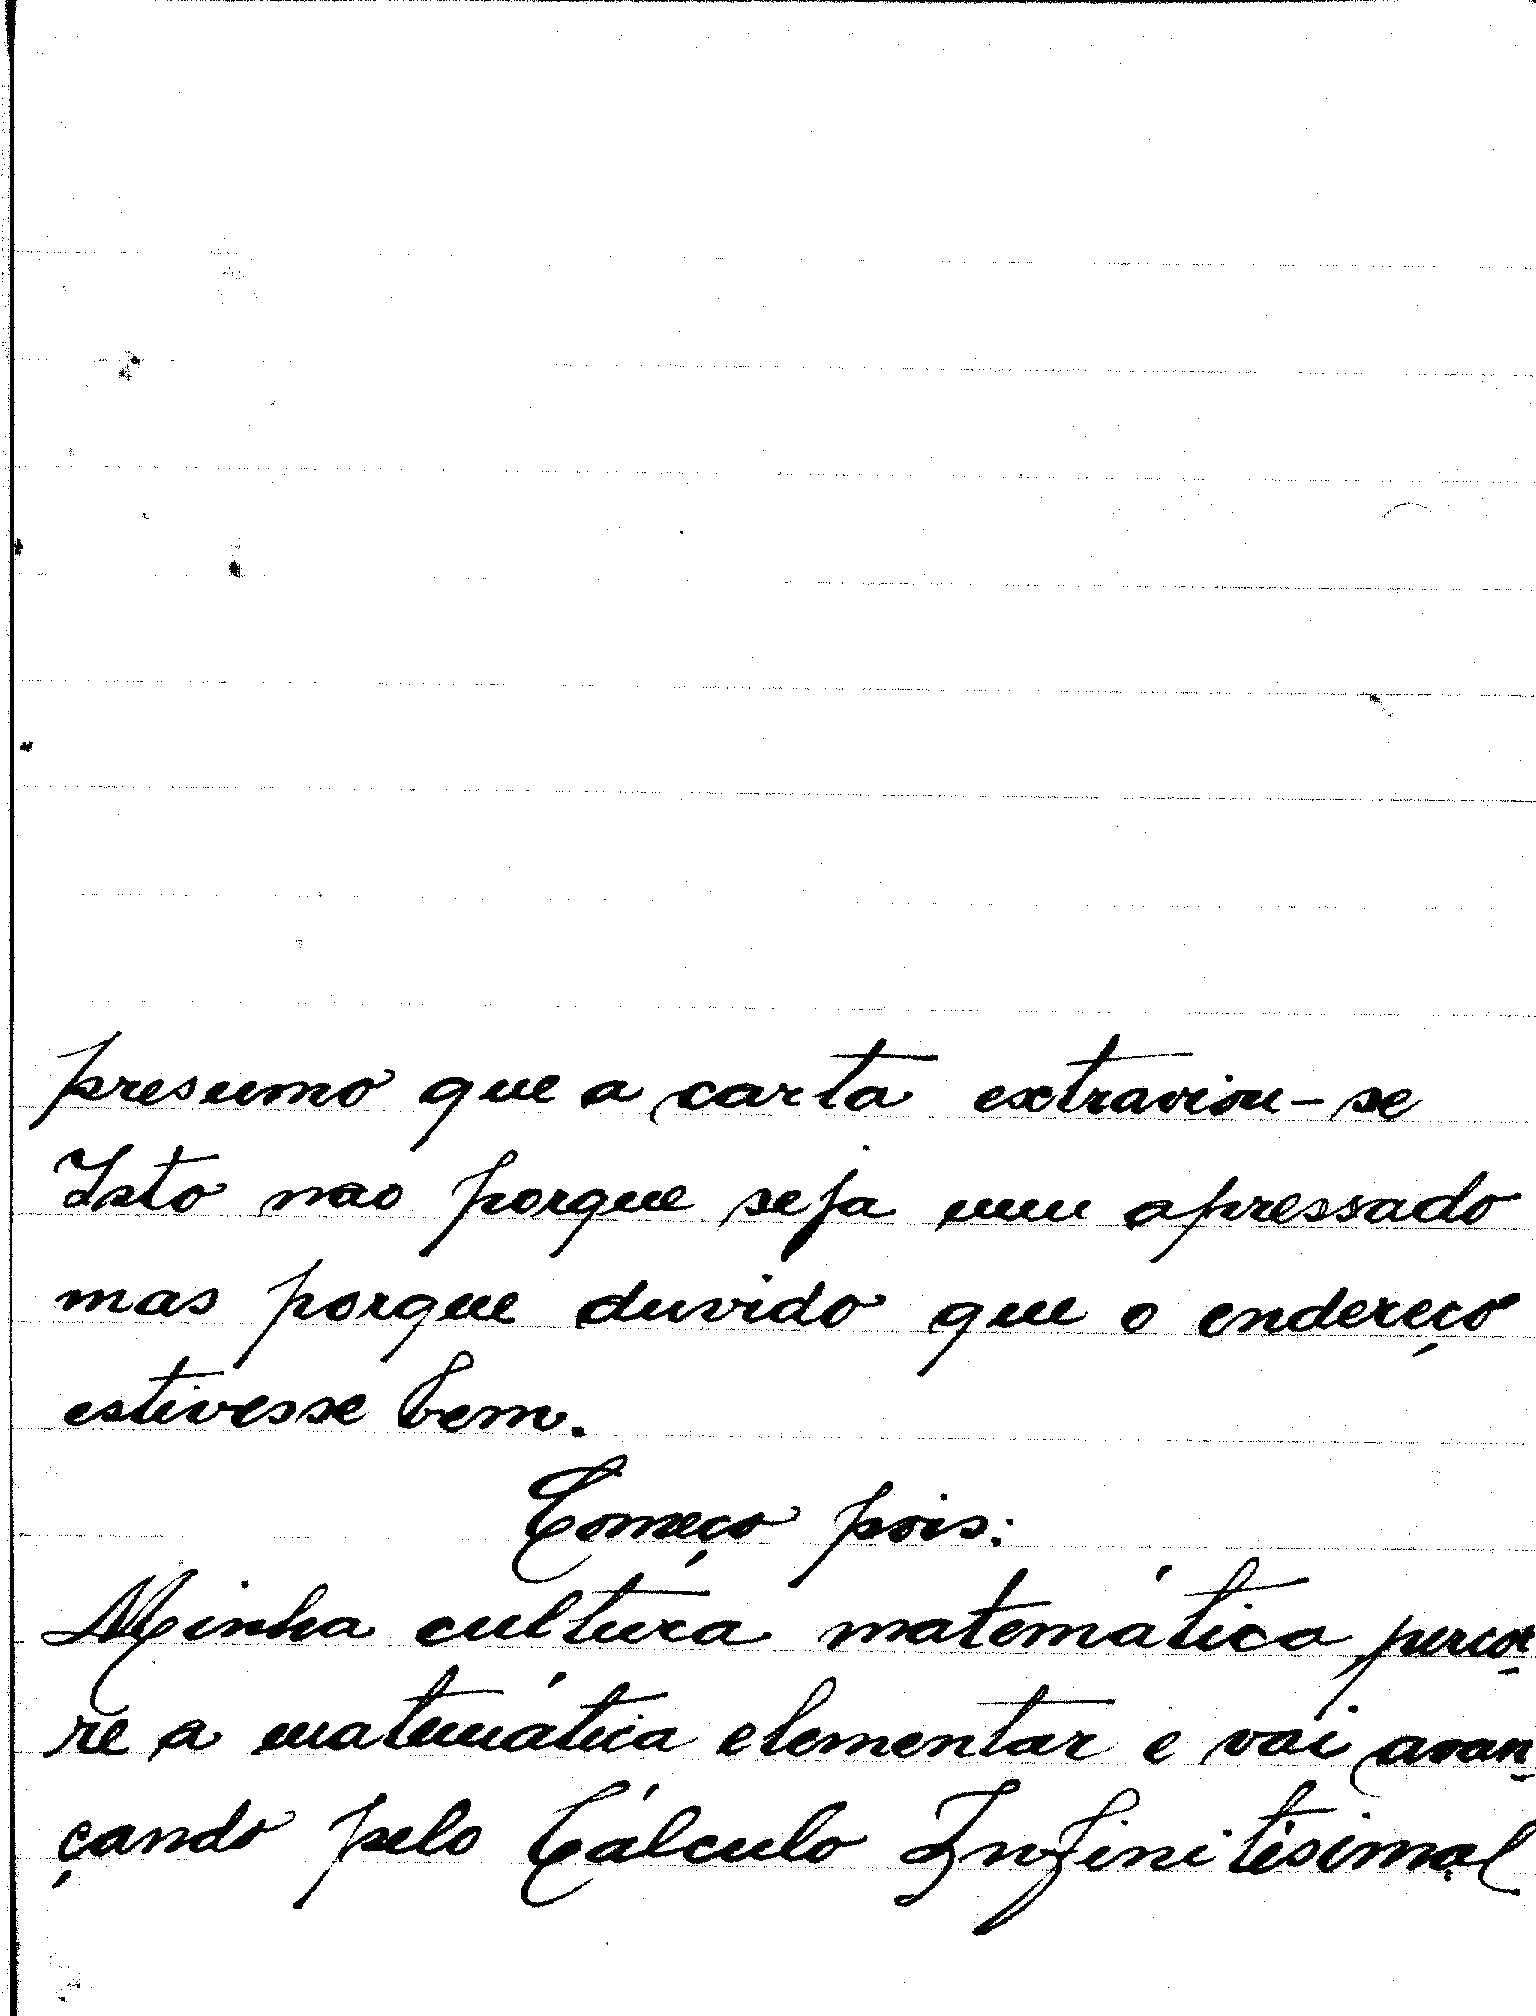 presumo que a carta extraviou-se
Isto nao porque seja um apressado
mas porque duvido que o endereço
estivesse bem.
Começo pois:
Minha cultura matemática percor
re a matemática elementar e vai avan
çando pelo Cálculo Infinitisimal